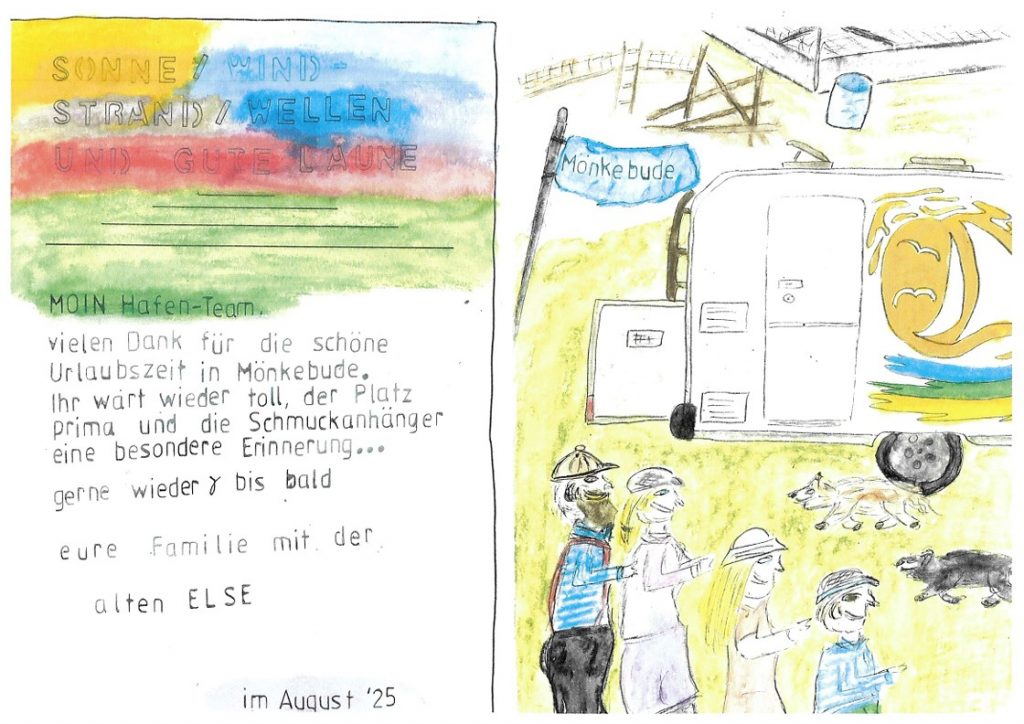 SONNE / WIND-
STRAND / WELLEN
UND GUTE LAUNE
MOIN Hafen-Team.
vielen Dank für die schöne
Urlaubszeit in Mönkebude.
Ihr wart wieder toll, der Platz
prima und die Schmuckanhänger
eine besondere Erinnerung...
gerne wieder & bis bald
eure Familie mit der
alten ELSE
im August '25
Mönkebude